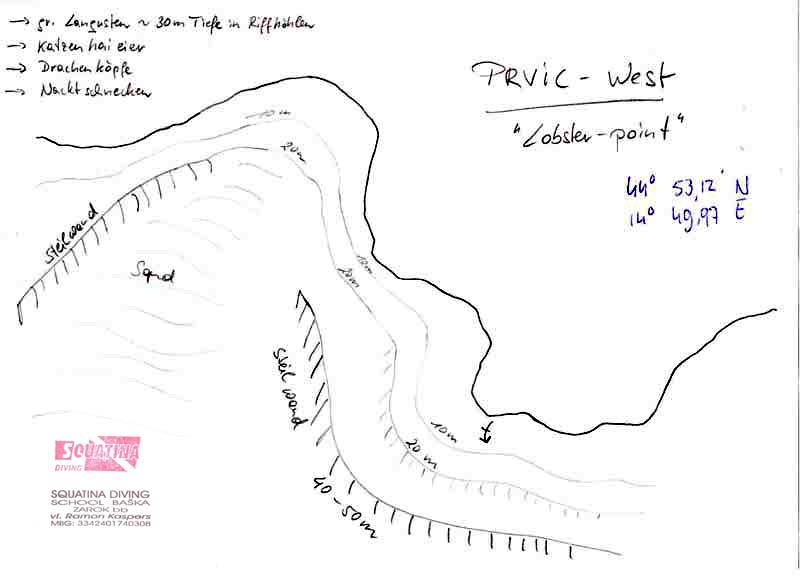 → gr. Langusten ~ 30m Tiefe in Riffhöhlen
→ Katzenhaieier
→ Drachenköpfe
→ Nacktschnecken
PRVIC - West
"Lobster-point"
44° 53,12' N
14° 49,97 E
10m
20m
Steilwand
Sand
10m
20m
Steilwand
10m
20m
40-50m
SQUATINA
DIVING
SQUATINA DIVING
SCHOOL BAŠKA
ZAROK bb
vl. Ramon Kaspers
MBG: 3342401740308